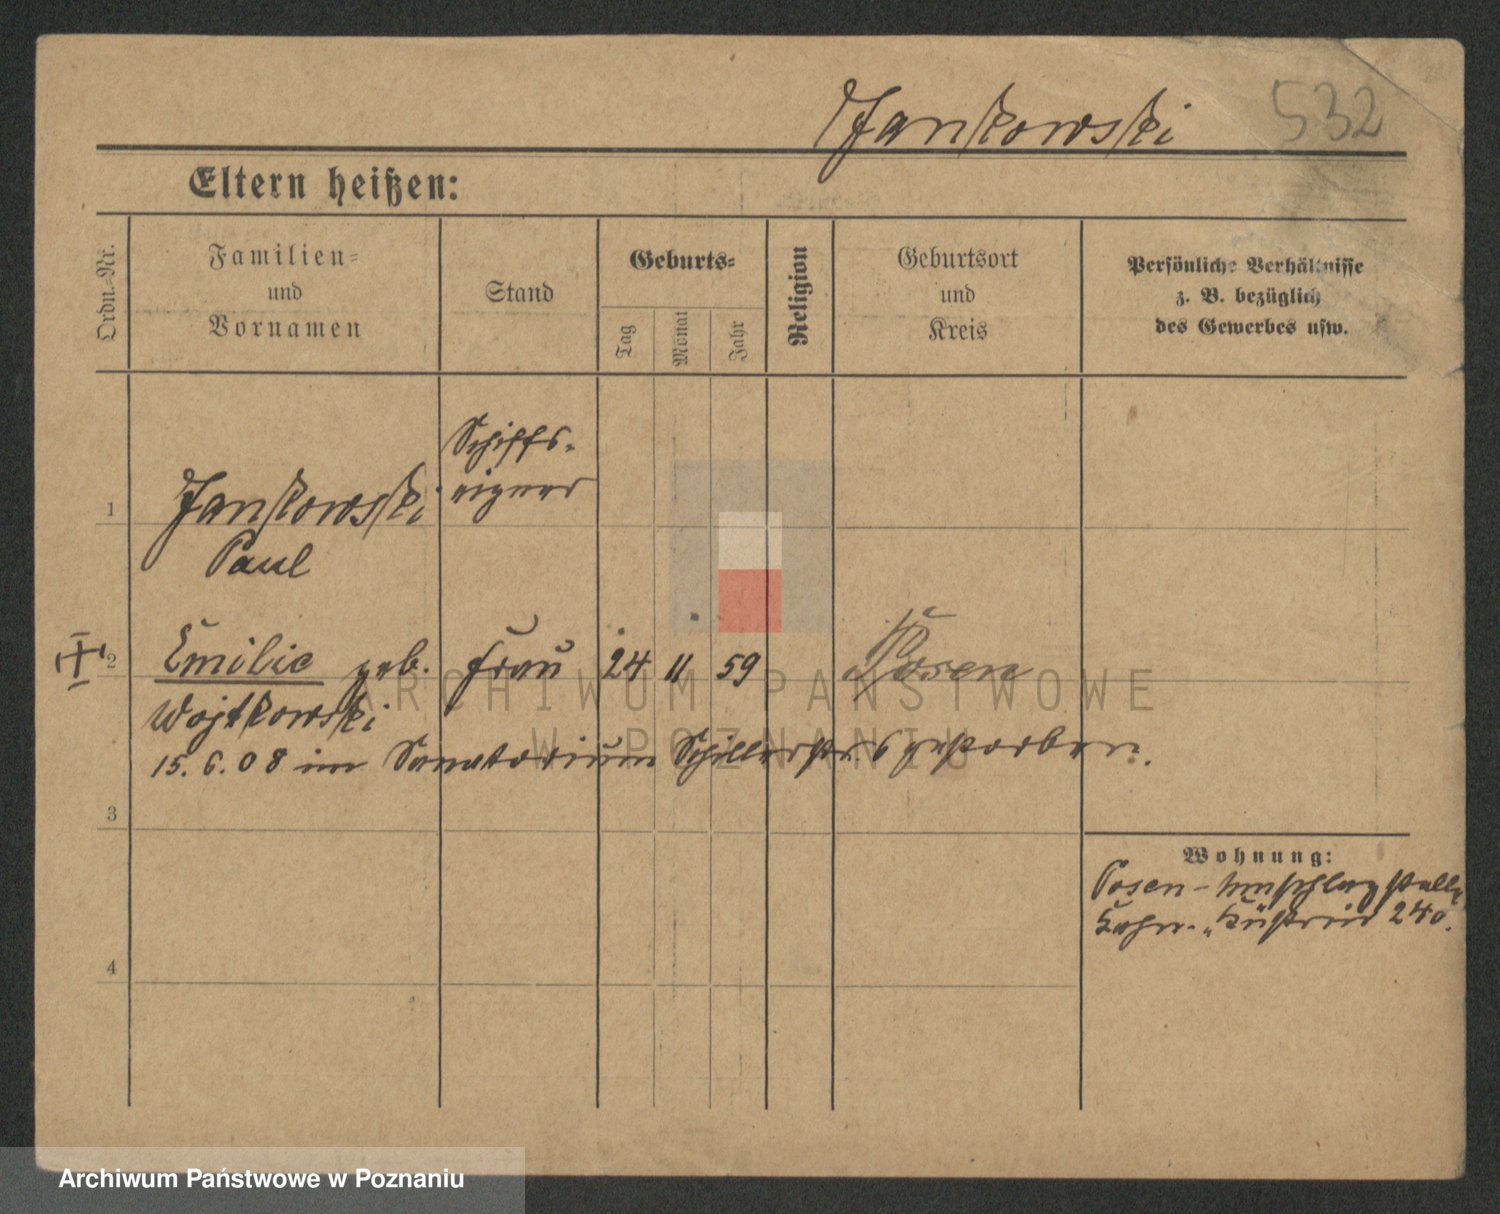 Jankowski 532
Eltern heißen:
Ordn.-Nr.
Familien-
und
Vornamen
Stand
Geburts-
Tag
Monat
Jahr
Religion
Geburtsort
und
Kreis
Persönliche Verhältnisse
z. B. bezüglich
des Gewerbes usw.
1
Jankowski
Paul
Schiffs-
eigner
2 Emilie geb. Frau 24 11 59 Posen
Wojtkowski
15. 6. 08 im Sanatorium Schillerstr. 6 gestorben.
3
4
Wohnung:
Posen - Umschlagstelle
Kahn "Küstrin 240.
ARCHIWUM PAŃSTWOWE
W POZNANIU
Archiwum Państwowe w Poznaniu